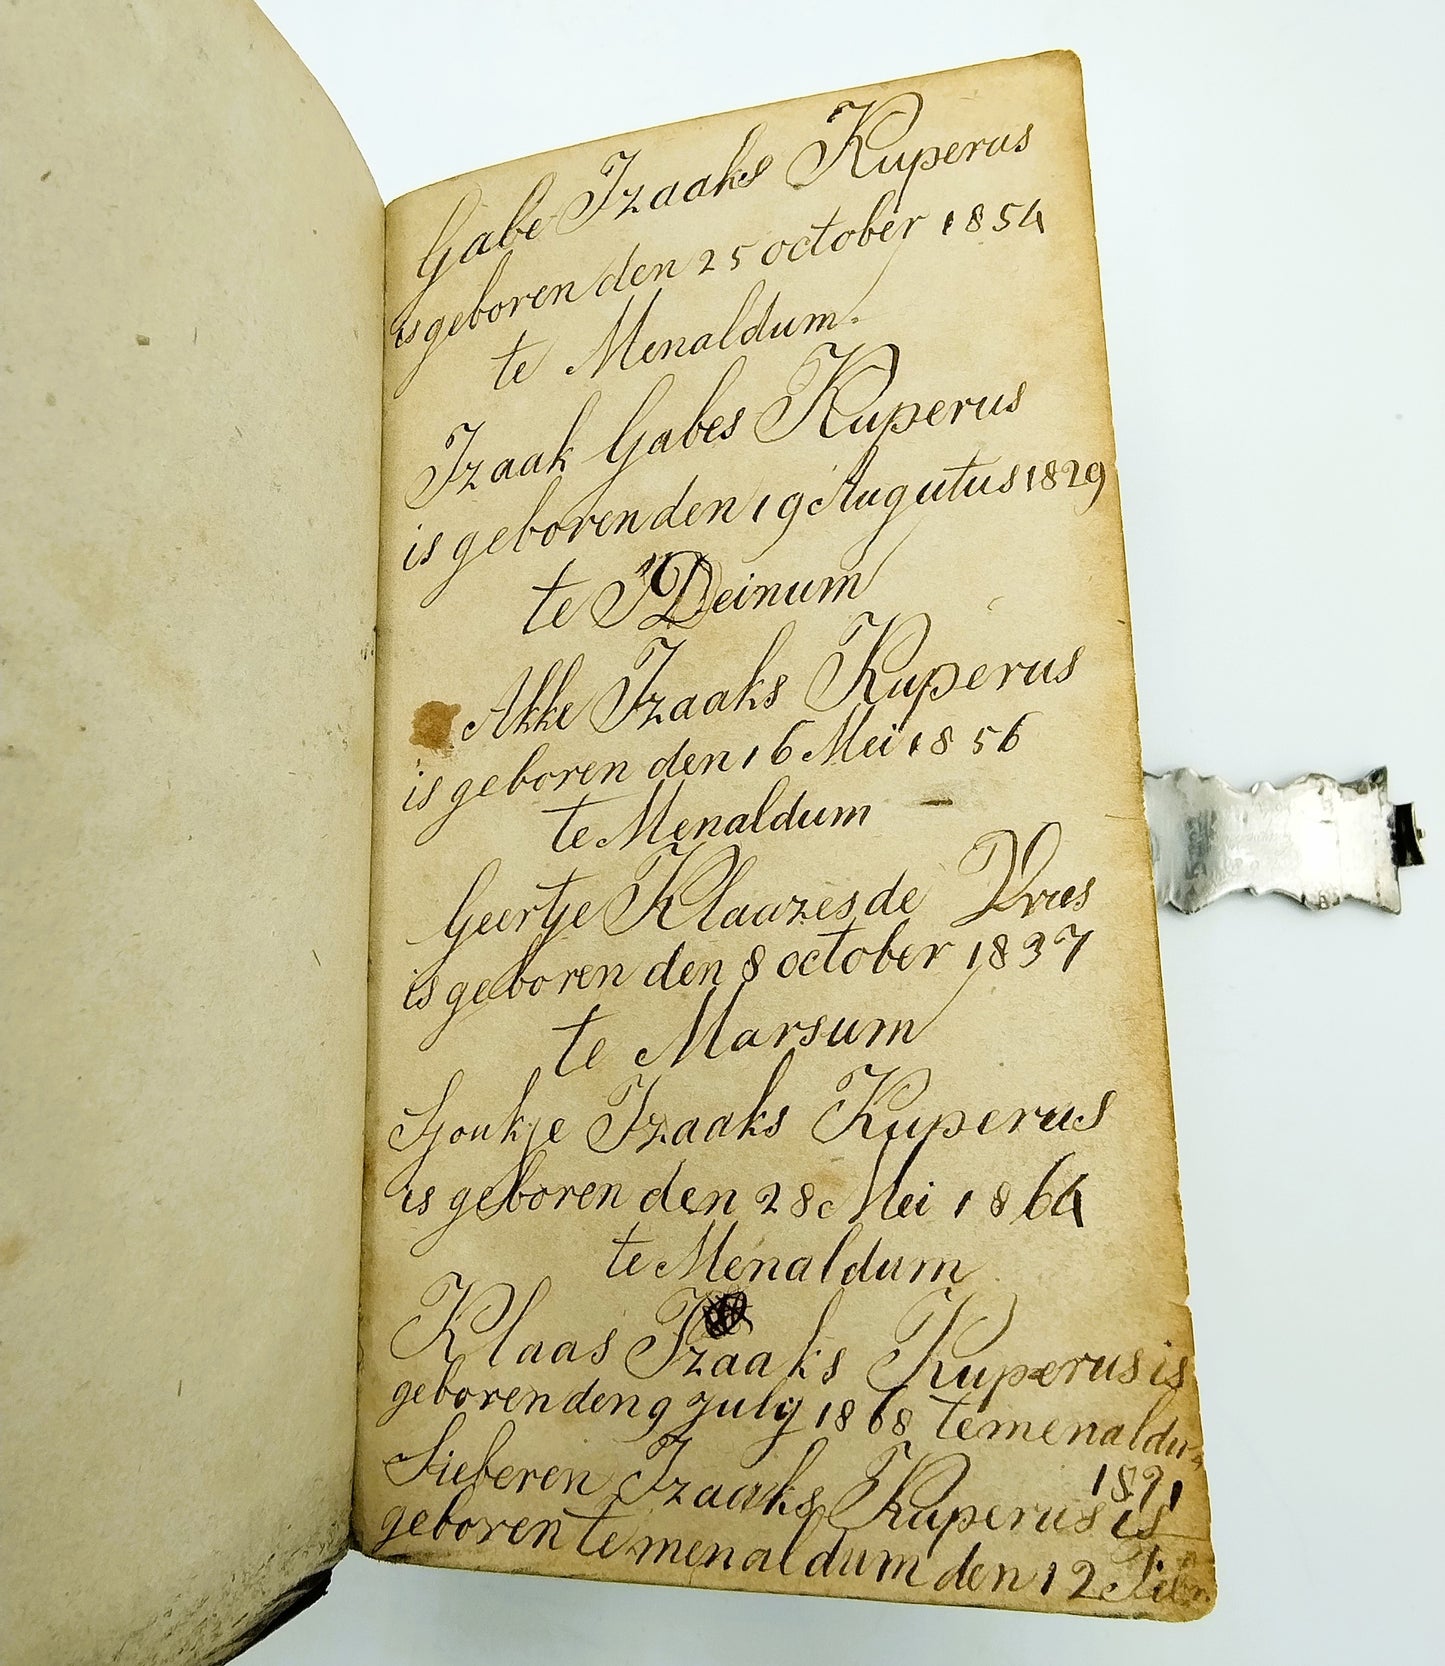 Gabe Izaaks Kuperus
is geboren den 25 october 1854
te Menaldum.
Izaak Gabes Kuperus
is geboren den 19 Augutus 1829
te Deinum
Akke Izaaks Kuperus
is geboren den 16 Mei 1856
te Menaldum
Geertje Klaazes de Vries
is geboren den 8 october 1837
te Marsum
Sjoukje Izaaks Kuperus
is geboren den 28 Mei 1864
te Menaldum
Klaas Izaaks Kuperus is
geboren den 9 july 1868 te menaldum
1871
Sieberen Izaaks Kuperus is
geboren te menaldum den 12 Febr.